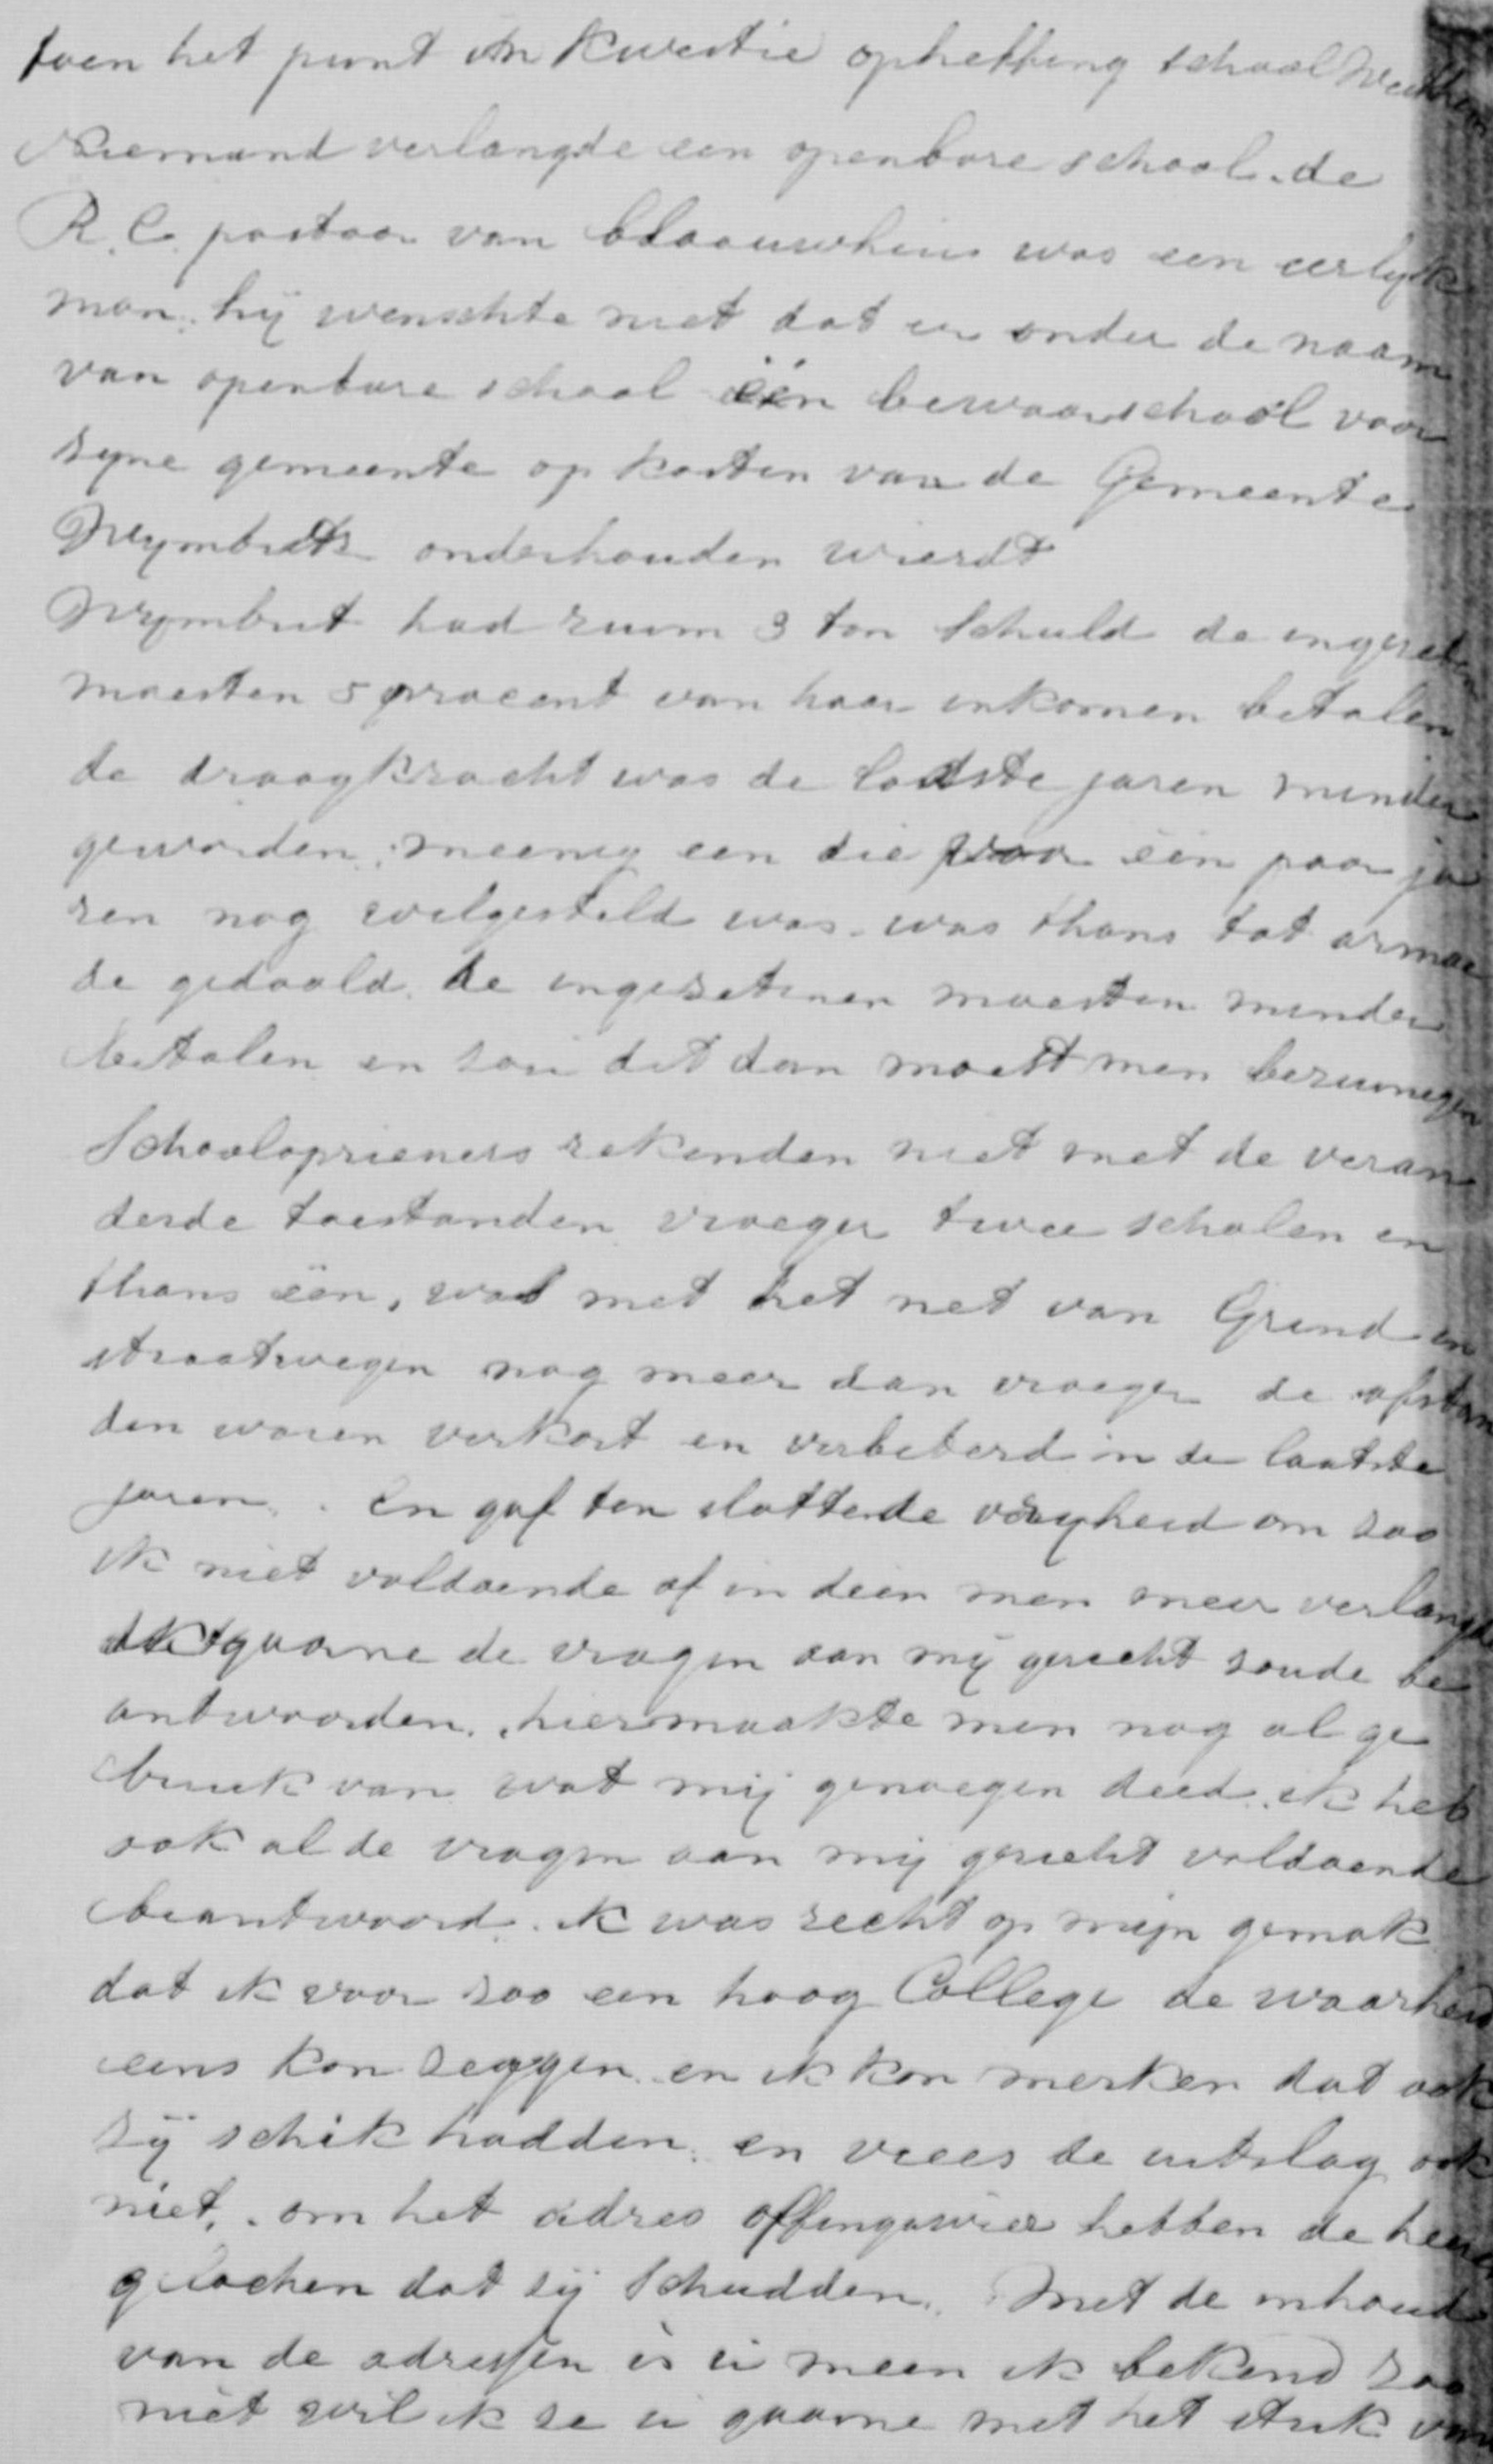 toen het punt in kwestie opheffing school
Niemand verlangde een openbare school. de
R.C. pastoor van blaauwhuis was een eerlyk
man. hij wenschte niet dat er onder de naam
van openbare school één bewaarschool voor
zyne gemeente op kosten van de Gemeente
Wymbrits onderhouden wierdt
Wymbrit had ruim 3 ton Schuld de ingezeten
moesten 5 procent van haar inkomen betalen
de draagkracht was de laatste jaren minder
geworden. meenig een die voor één paar ja
ren nog welgesteld was. was thans tot armoe
de gedaald. de ingezetenen moesten minder
betalen en zou dit dan moest men bezuinegen
Schooloprieners rekenden niet met de veran
derde toestanden vroeger twee scholen en
thans één, wat met het net van Grind en
straatwegen nog meer dan vroeger de afstan
den waren verkort en verbeterd in de laatste
jaren. en gaf ten slotte de vryheid om zoo
ik niet voldoende of in deen men meer verlangde
ik gaarne de vragen aan mij gericht zoude be
antwoorden. hier maakte men nog al ge
bruik van wat mij genoegen deed. ik heb
ook al de vragen aan mij gericht voldoende
beantwoord. ik was recht op mijn gemak
dat ik voor zoo een hoog College de waarheid
eens kon zeggen. en ik kon merken dat ook
zij schik hadden. en vrees de uitslag ook
niet. om het adres offingawier hebben de heeren
gelachen dat zij Schudden. Met de inhoud
van de adressen is u meen ik bekend zoo
niet wil ik ze u gaarne met het stuk van